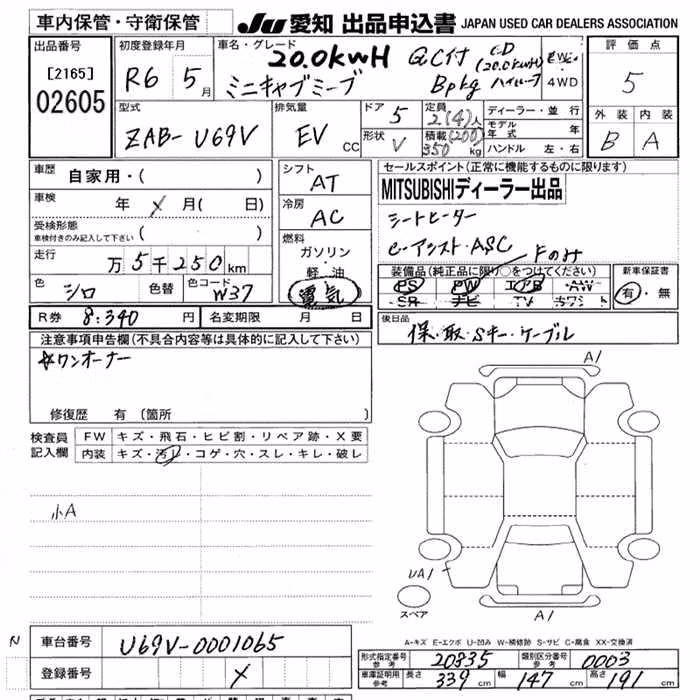 車内保管・守衛保管 JU 愛知 出品申込書 JAPAN USED CAR DEALERS ASSOCIATION
出品番号 [2165] 02605
初度登録年月 R6 5月
車名・グレード 20.0kWH QC付 CD (20.0kWH)
ミニキャブミーブ Bpkg ハイルーフ 4WD
評価点 5
外装 内装
B A
型式 ZAB-U69V
排気量 EV cc
ドア 5
形状 V
定員 2(4)人
積載 (200) 350 kg
ディーラー・並行
モデル年式 年
ハンドル 左・右
車歴 自家用・( )
車検 年 メ 月( 日)
受検形態 車検付きのみ記入して下さい ( )
走行 万5千250km
色 シロ 色替 色コード W37
シフト AT
冷房 AC
燃料 ガソリン・軽・油 電気
セールスポイント(正常に機能するものに限ります)
MITSUBISHIディーラー出品
シートヒーター
e-アシスト・ASC
Fのみ
装備品(純正品に限り○をつけてください)
PS PW エアB AW
SR ナビ TV カワシート
新車保証書 有・無
R券 8,340円 名変期限 月 日
後日品 保・取・Sキー・ケーブル
注意事項申告欄(不具合内容等は具体的に記入して下さい)
☆ワンオーナー
修復歴 有 (箇所 )
検査員記入欄
FW キズ・飛石・ヒビ割・リペア跡・X要
内装 キズ・汚レ・コゲ・穴・スレ・キレ・破レ
小A
A1
UA1
スペア
A1
A-キズ E-エクボ U-凹み W-補修跡 S-サビ C-腐食 XX-交換済
N 車台番号 U69V-0001065
登録番号 メ
形式指定番号 参考 20835 類別区分番号 参考 0003
車庫証明用 参考 長さ 339cm 幅 147cm 高さ 191cm